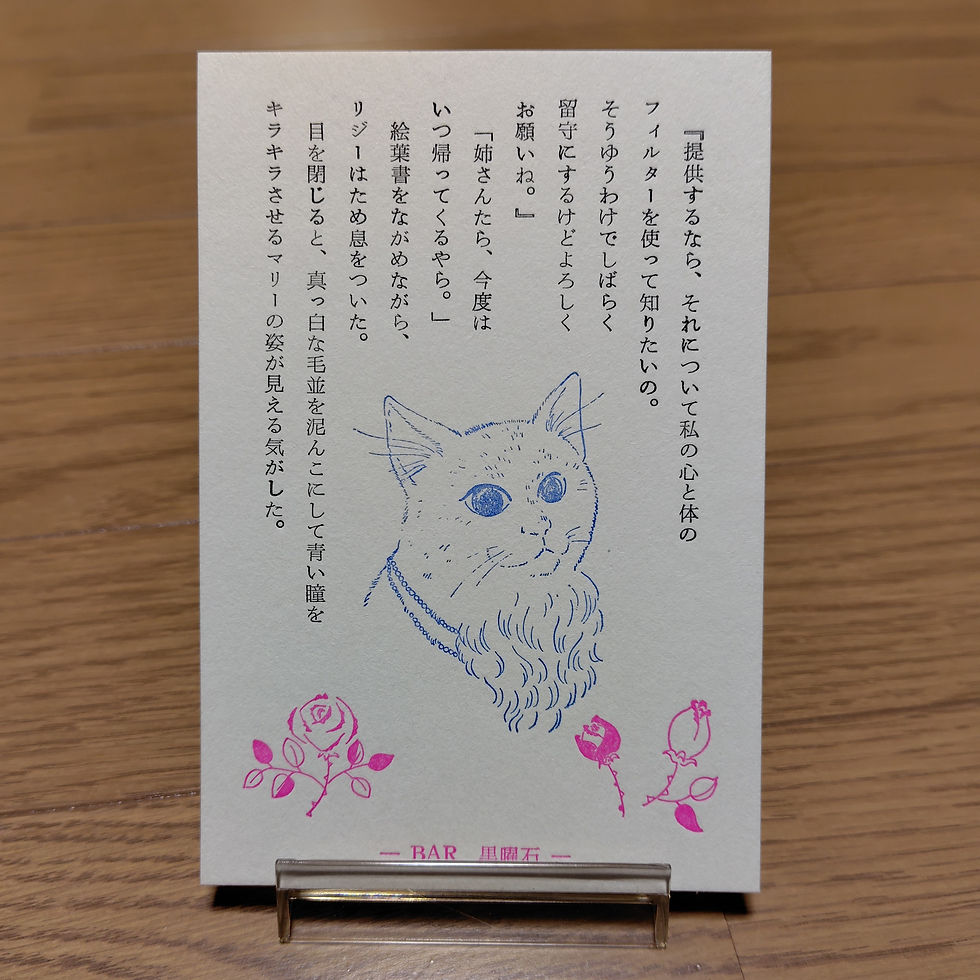 『提供するなら、それについて私の心と体の
フィルターを使って知りたいの。
そうゆうわけでしばらく
留守にするけどよろしく
お願いね。』
「姉さんたら、今度は
いつ帰ってくるやら。」
絵葉書をながめながら、
リジーはため息をついた。
目を閉じると、真っ白な毛並を泥んこにして青い瞳を
キラキラさせるマリーの姿が見える気がした。
— BAR 黒曜石 —